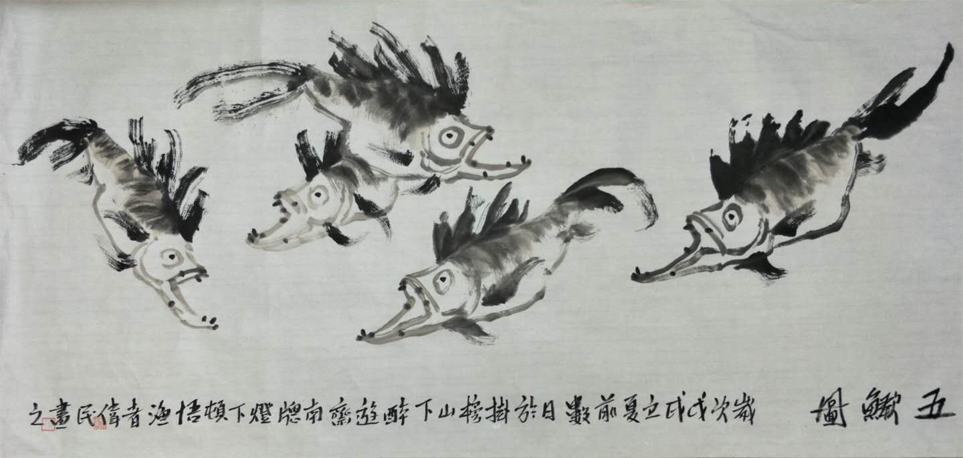 五鱖圖
歲次戊戌立夏前數日於掛榜山下醉遊齋南牕燈下頓悟漁者偉民畫之